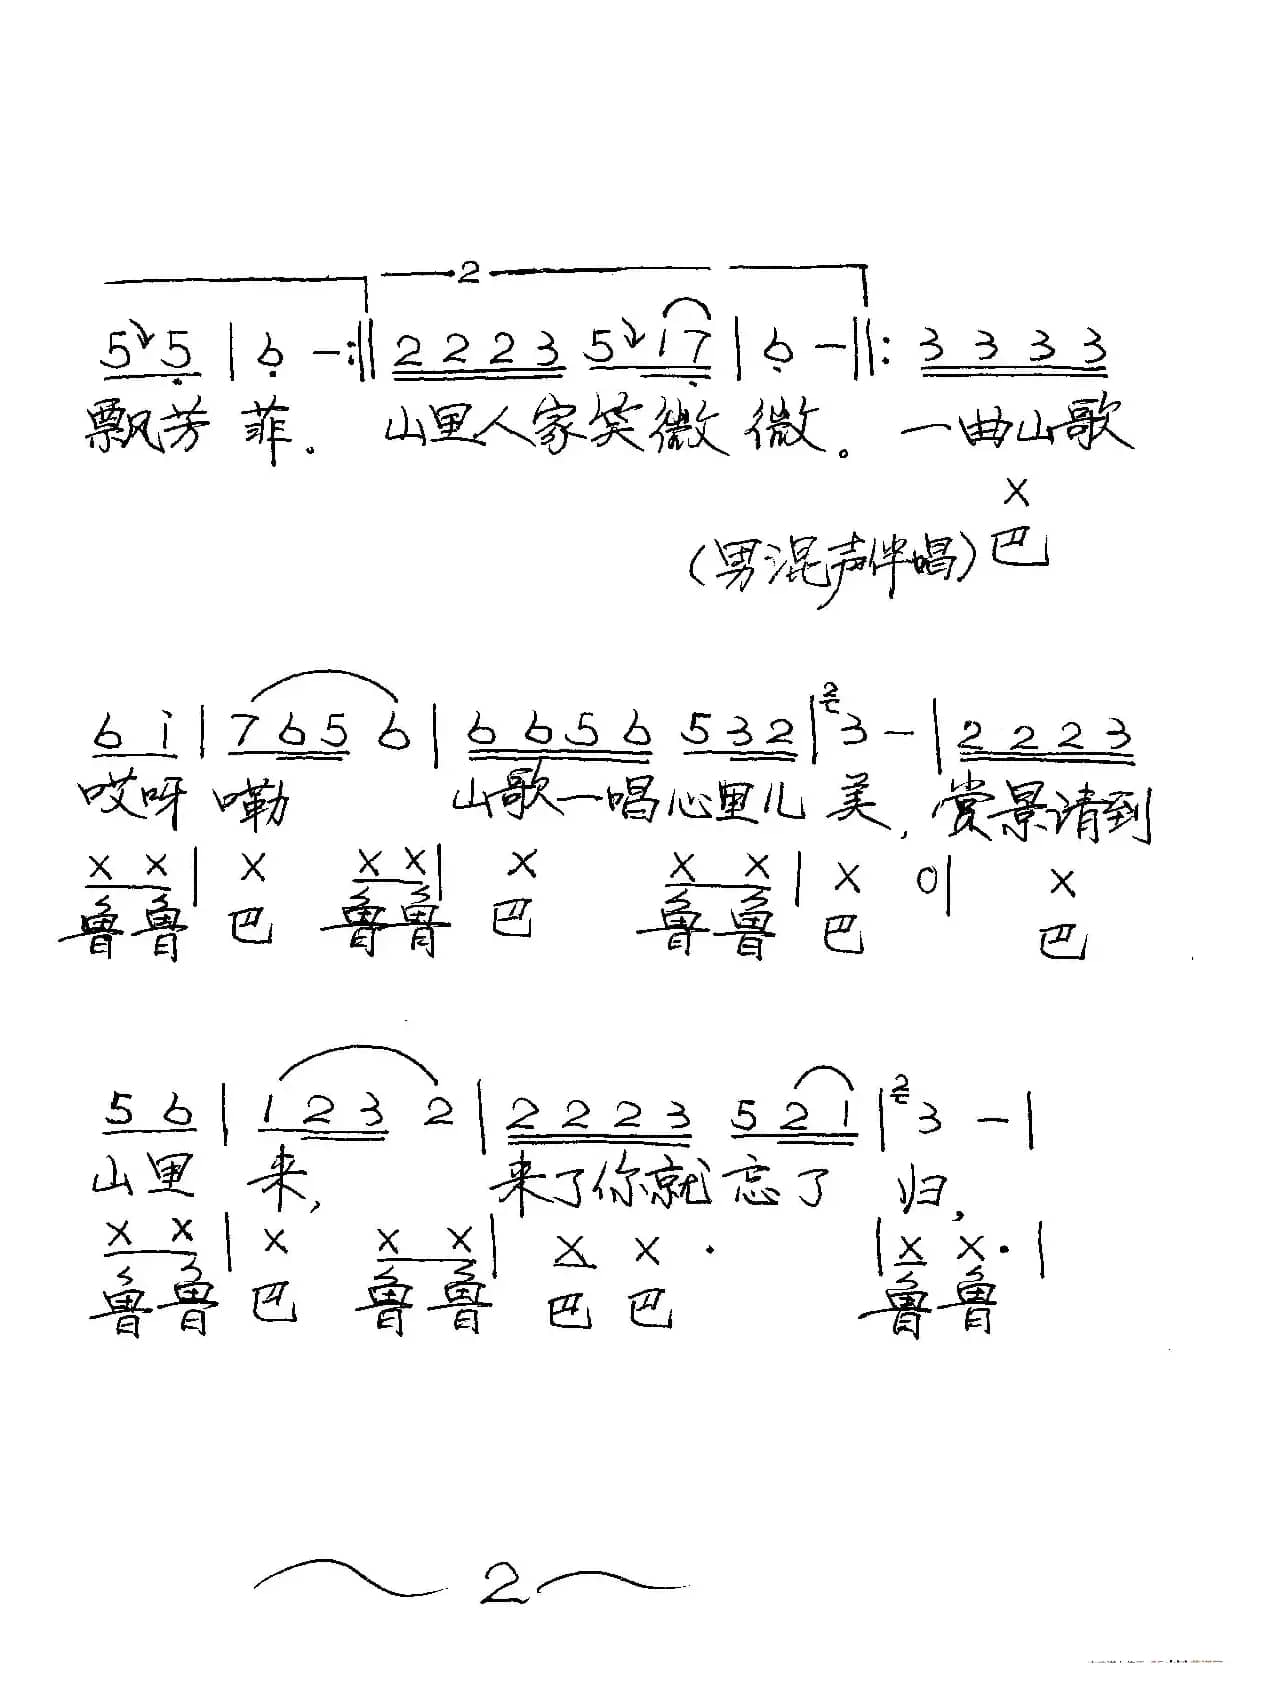 2
5 5 | 6 - :‖ 2 2 2 3 5 1 7 | 6 - ‖: 3 3 3 3
飘芳菲. 山里人家笑微微。一曲山歌
X
(男混声伴唱) 巴
6 i | 7 6 5 6 | 6 6 5 6 5 3 2 | 2 3 - | 2 2 2 3
哎呀嘞 山歌一唱心里儿美, 赏景请到
X X | X X X | X X X | X 0 | X
鲁鲁 巴 鲁鲁 巴 鲁鲁 巴 巴
5 6 | 1 2 3 2 | 2 2 2 3 5 2 1 | 2 3 - |
山里来, 来了你就忘了归,
X X | X X X | X X · | X X · |
鲁鲁 巴 鲁鲁 巴巴 鲁鲁
2